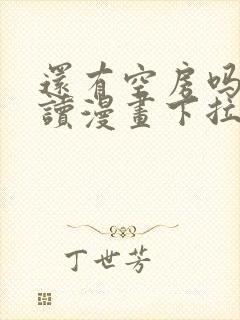 還有空房吗
讀漫畫下拉
丁世芳